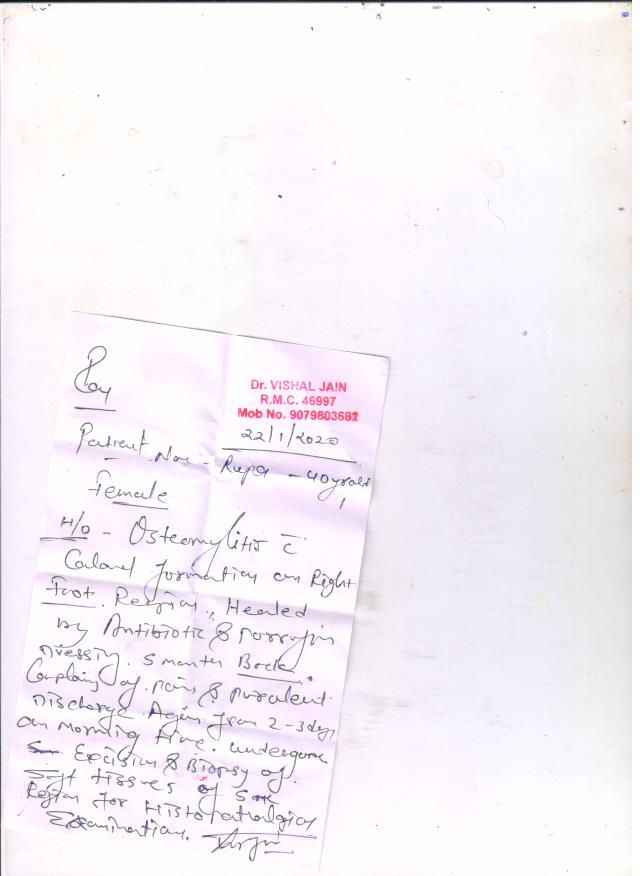 Dr. VISHAL JAIN
R.M.C. 46997
Mob No. 9079803682
22/1/2020
Patient Name - Rupa - 40 years
Female
H/O - Osteomylitis c̄
formation on Right
Foot Region, Healed
by Antibiotic &
Dressing. 5 month Back.
Complain of pain & purulent
Discharge Again from 2-3 day,
on morning time. undergone
Excision & Biopsy of
Soft tissues of Same
Region for Histopathological
Examination.